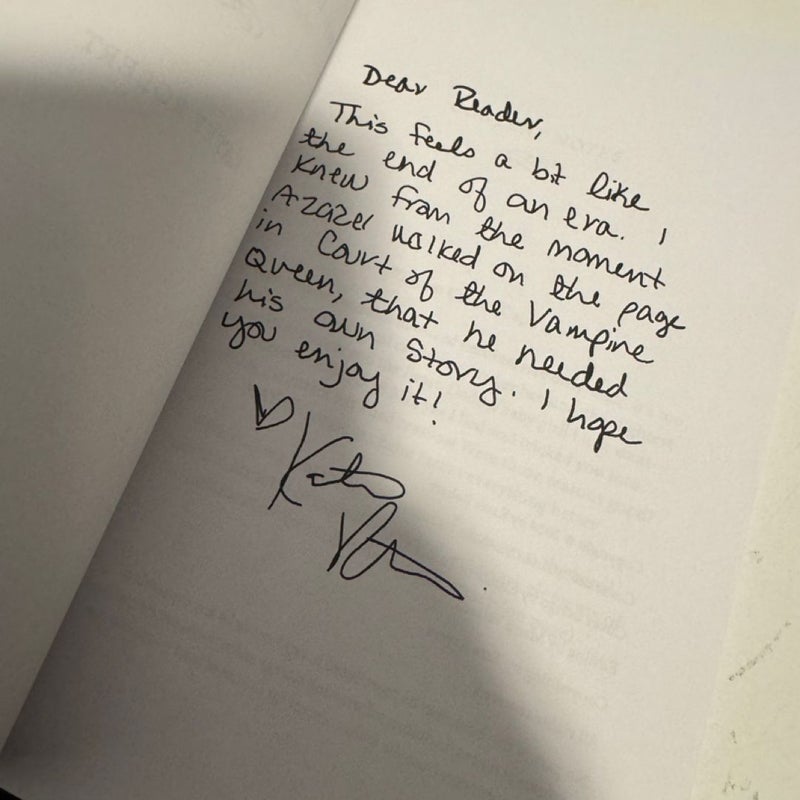 Dear Reader,
This feels a bit like
the end of an era. I
knew from the moment
Azazel walked on the page
in Court of the Vampire
Queen, that he needed
his own story. I hope
you enjoy it!
♡ Katee